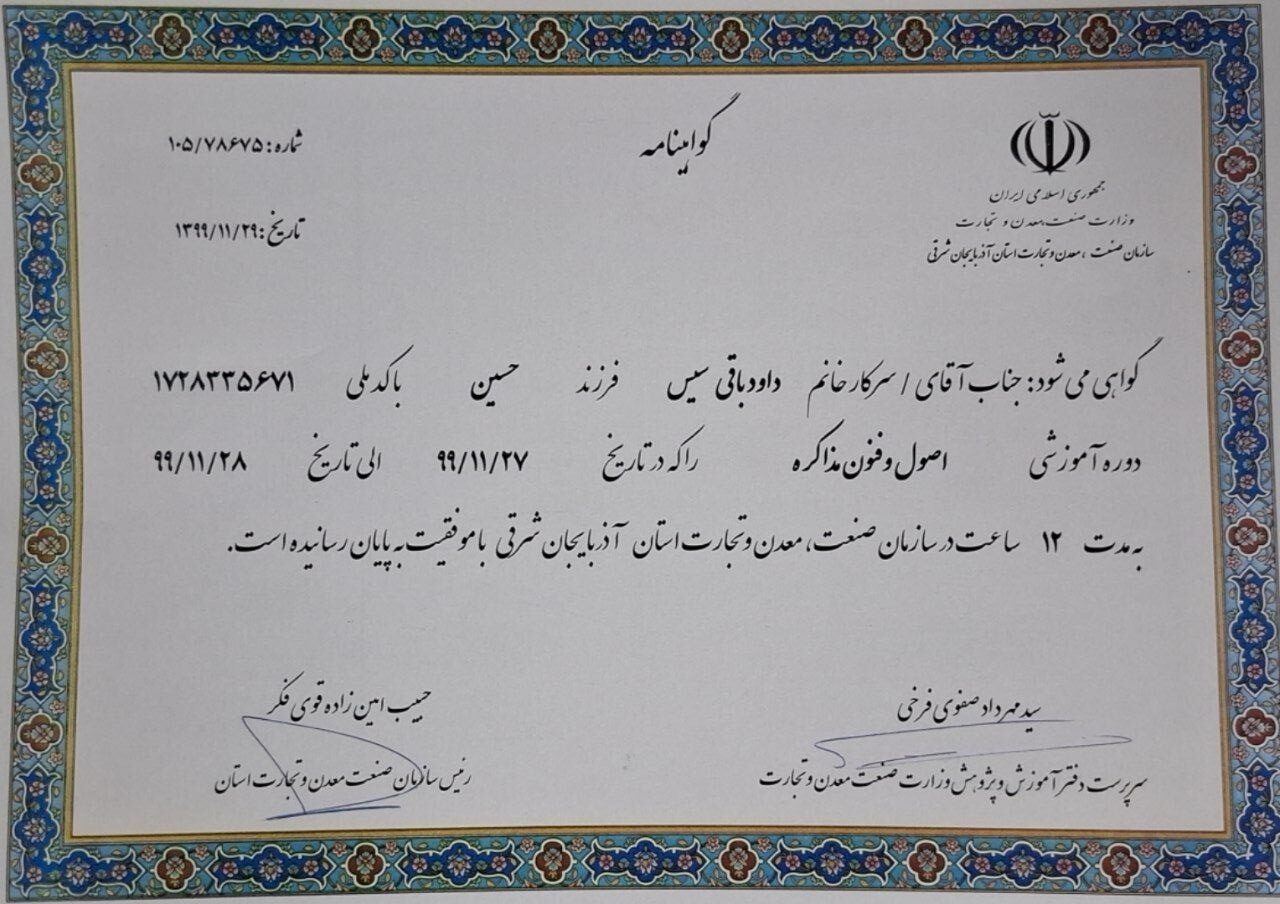 گواهینامه
جمهوری اسلامی ایران
وزارت صنعت، معدن و تجارت
سازمان صنعت ، معدن و تجارت استان آذربایجان شرقی
شماره: ۱۰۵/۷۸۶۷۵
تاریخ: ۱۳۹۹/۱۱/۲۹
گواهی می شود: جناب آقای / سرکار خانم داود باقی سیس فرزند حسین با کد ملی ۱۷۲۸۳۳۵۶۷۱
دوره آموزشی اصول و فنون مذاکره را که در تاریخ ۹۹/۱۱/۲۷ الی تاریخ ۹۹/۱۱/۲۸
به مدت ۱۲ ساعت در سازمان صنعت، معدن و تجارت استان آذربایجان شرقی با موفقیت به پایان رسانیده است.
سید مهرداد صفوی فرخی
سرپرست دفتر آموزش و پژوهش وزارت صنعت معدن و تجارت
حبیب امین زاده قوی فکر
رئیس سازمان صنعت معدن و تجارت استان